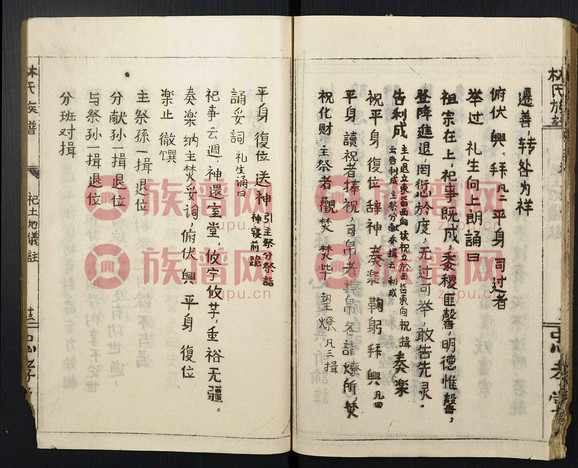 遷善，转咎为祥
俯伏 興 拜凡四 平身 司过者
举过 礼生向上朗誦曰
祖宗在上，祀事既成，黍稷匪馨，明德惟馨，
登降進退，罔愆於度，无过可举，敢告先灵。
告利成 奏樂
祝平身 復位 辞神 奏樂 鞠躬 拜 興凡四
平身 讀祝者捧祝，司帛者捧帛 各詣燎所 焚
祝化財 主祭者觀焚 焚毕 望燎凡三揖
平身 復位 送神
誦妥詞 礼生誦曰
祀事云週，神還室堂，佽字攸芋，垂裕无疆。
奏樂 纳主 焚妥詞，俯伏 興 平身 復位
樂止 徹馔
主祭孫一揖退位
分献孫一揖退位
与祭孫一揖退位
分班对揖
林氏族譜
祀土地儀註
忠孝堂
族譜网
zupu.cn